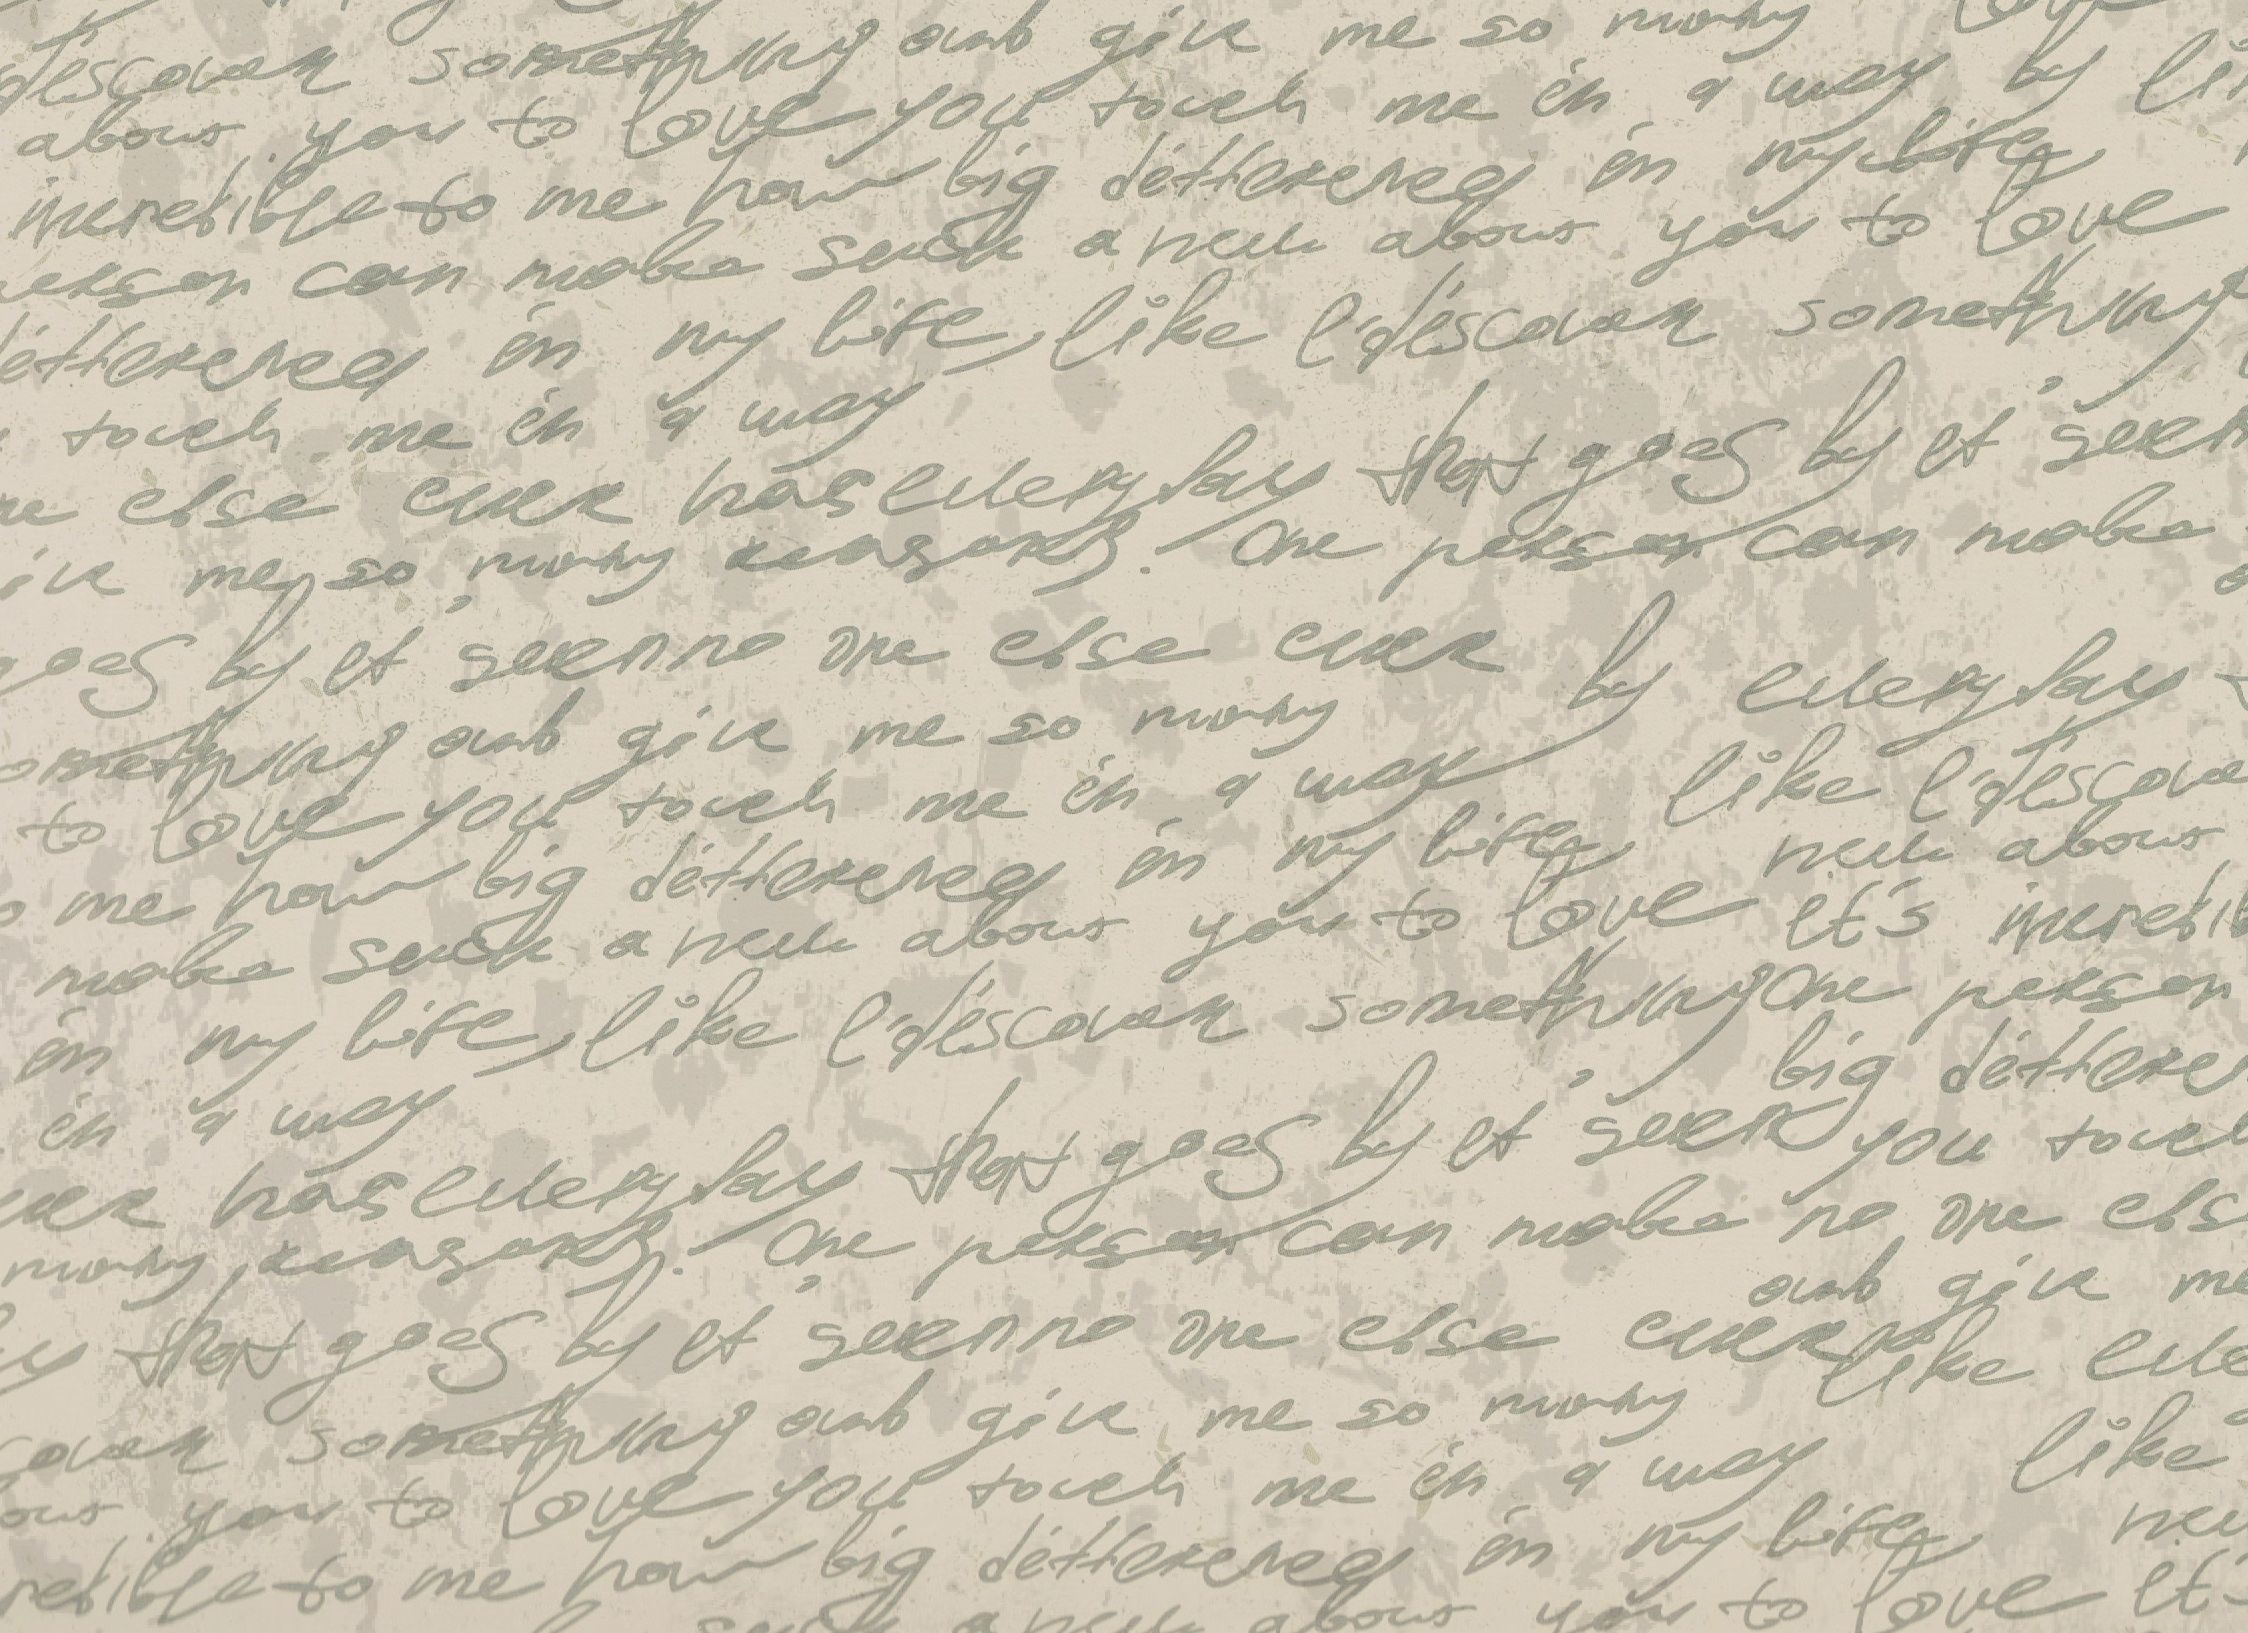 discover something and give me so many
about you to love you touch me in a way by
incredible to me how big difference in my life
person can make such a new about you to love
difference in my life, like I discover something
touch me in a way
else ever has everyday that goes by it seem
me, so many reasons. One person can make
goes by it seem no one else ever by everyday
something and give me so many like I discover
to love you touch me in a way new about
to me how big difference in my life, It's incredible
make such a new about you to love One person
in my life, like I discover something big difference
in a way you touch
ever has everyday that goes by it seem no one else
many reasons. One person can make and give me
that goes by it seem no one else ever like
discover something and give me so many like
you to love you touch me in a way
incredible to me how big difference in my life
a new about you to love It's